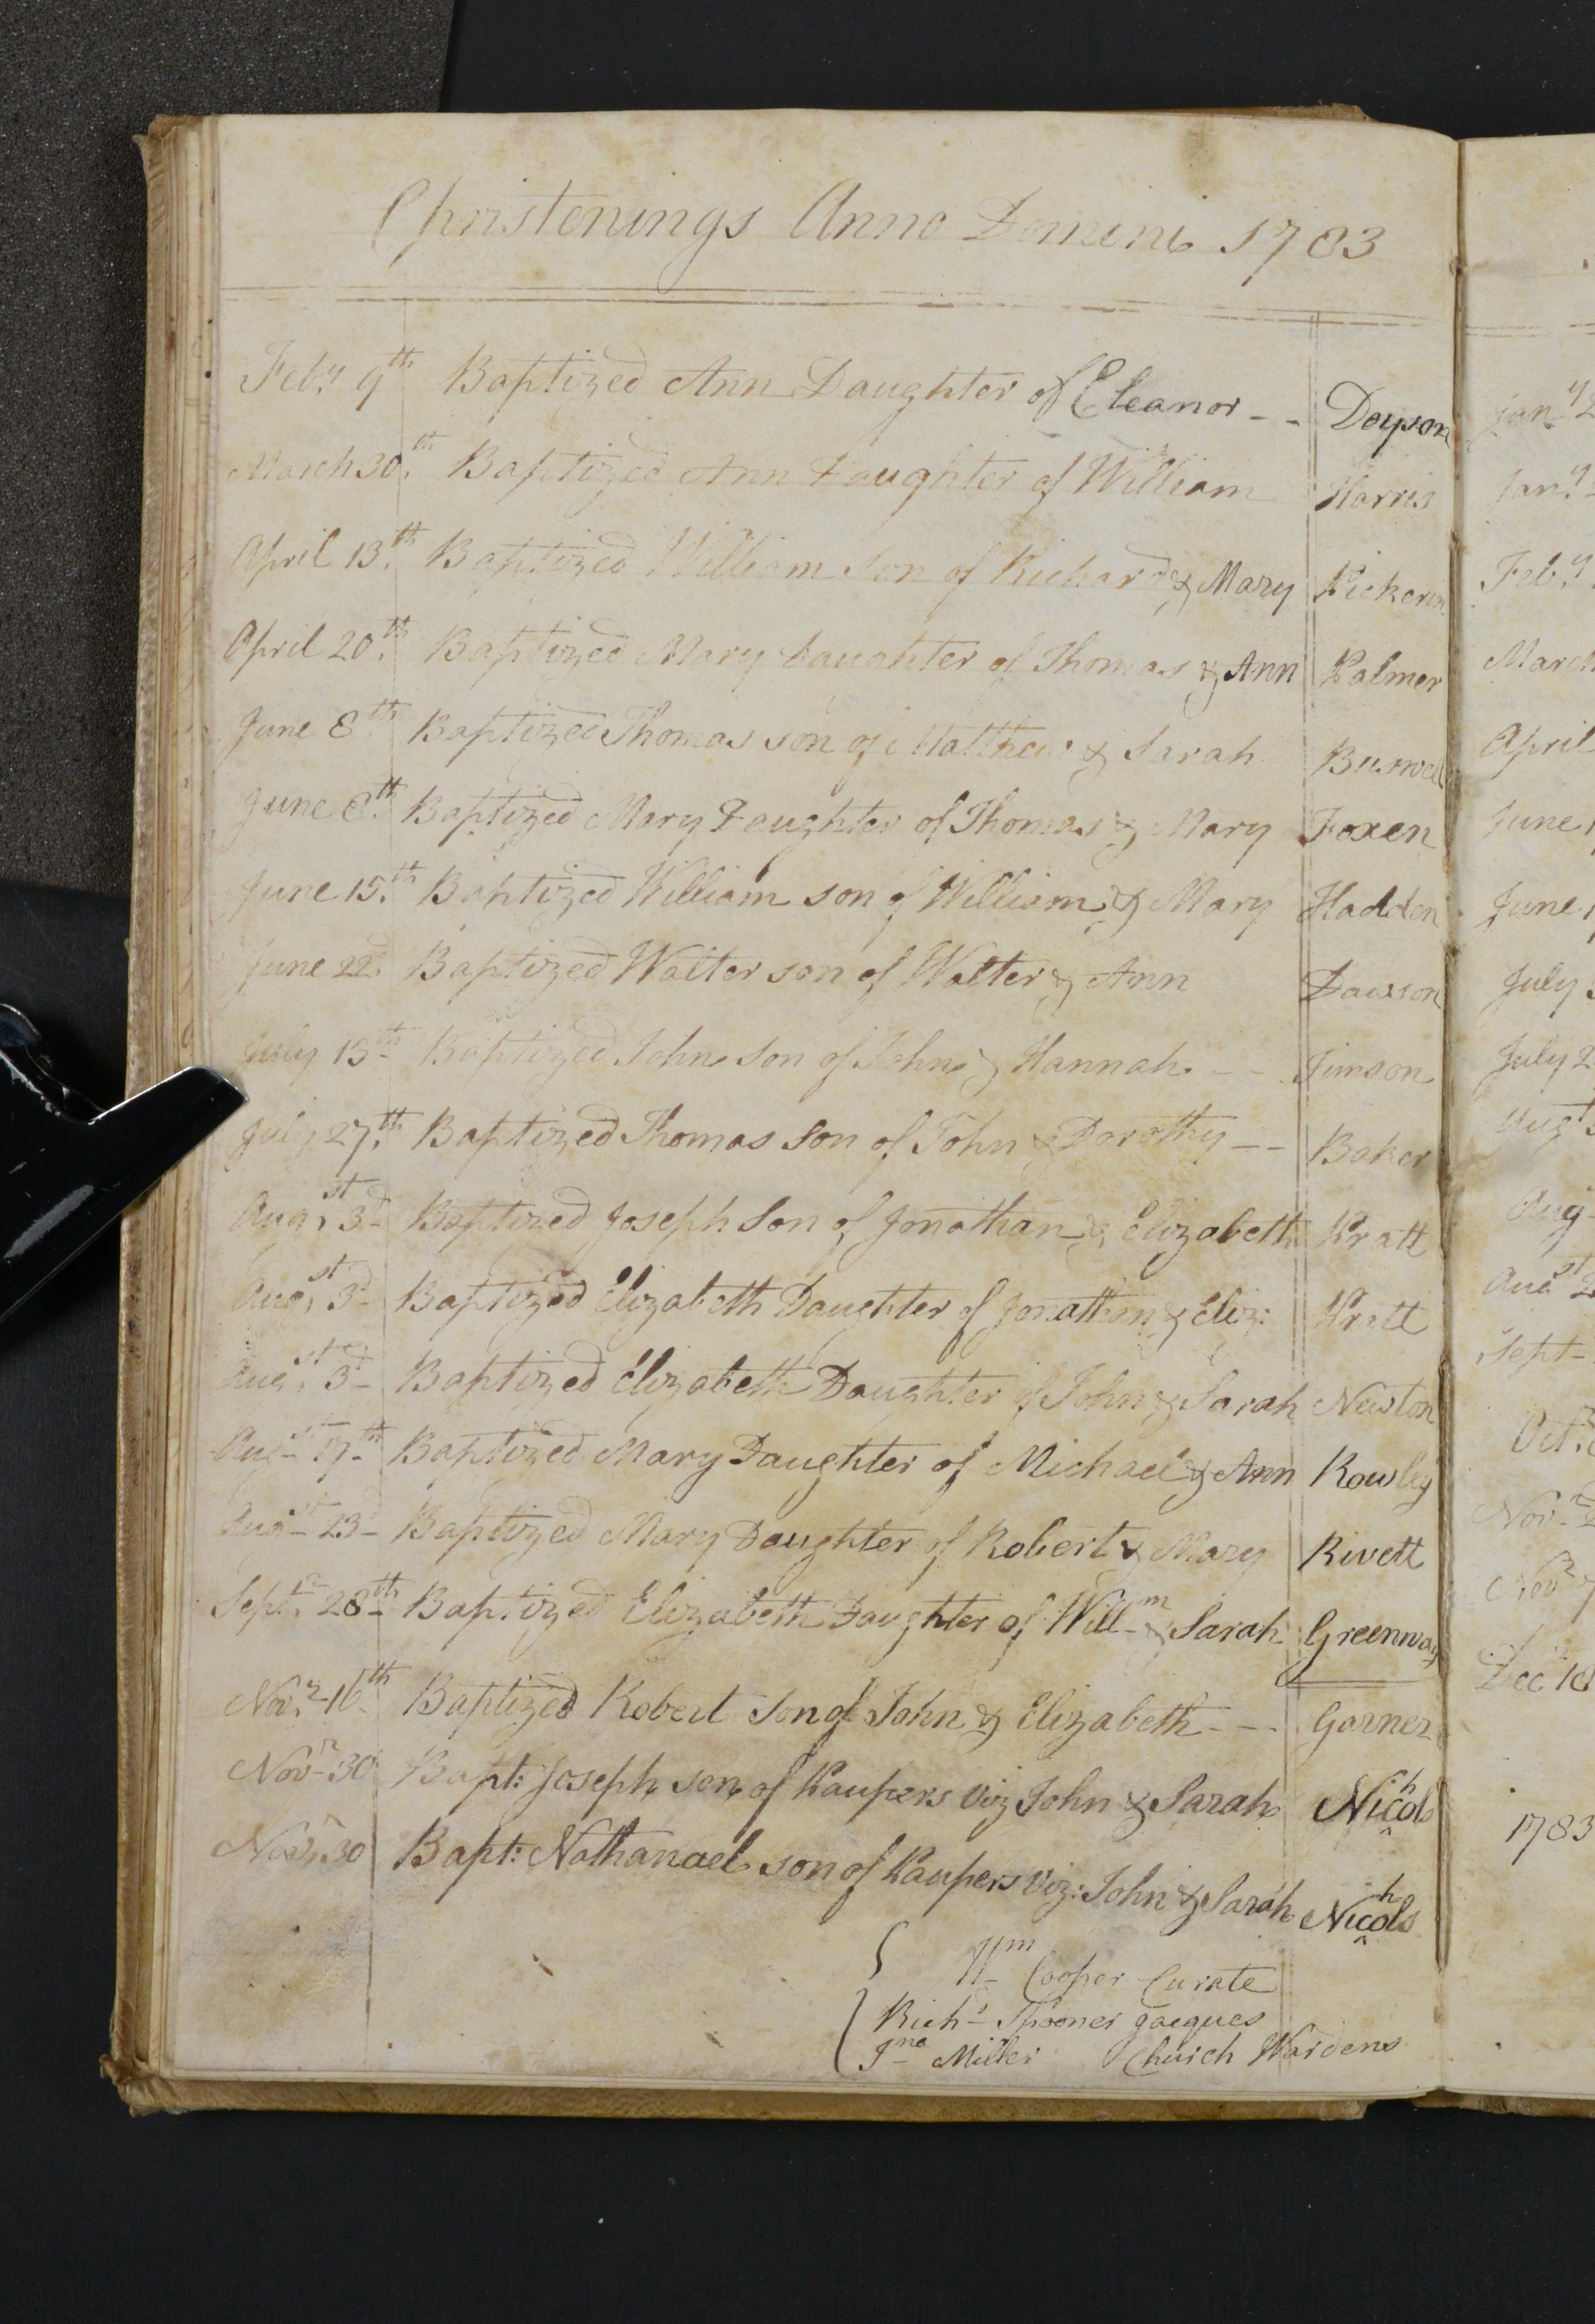 Christenings Anno Domini 1783
Feby. 9th Baptized Ann Daughter of Eleanor - - Deyson
March 30.th Baptized Ann Daughter of William Harris
April 13.th Baptized William Son of Richard & Mary Pickerin
April 20.th Baptized Mary Daughter of Thomas & Ann Palmer
June 8.th Baptized Thomas son of Matthew & Sarah Buswell
June 8.th Baptized Mary Daughter of Thomas & Mary Foxen
June 15.th Baptized William son of William & Mary Hadden
June 22.d Baptized Walter son of Walter & Ann Dawson
July 13th Baptized John Son of John & Hannah - - Timson
July 27.th Baptized Thomas Son of John & Dorothy - - Baker
Augst 3d Baptized Joseph Son of Jonathan & Elizabeth Pratt
Augst 3d Baptized Elizabeth Daughter of Jonathan & Eliz: Pratt
Augst 3d Baptized Elizabeth Daughter of John & Sarah Newton
Augst 17th Baptized Mary Daughter of Michael & Ann Rowley
Augst 23d Baptized Mary Daughter of Robert & Mary Rivett
Septr 28th Baptized Elizabeth Daughter of Willm & Sarah Greenway
Novr 16th Baptized Robert Son of John & Elizabeth - - - Garner
Novr 30 Bapt: Joseph son of Paupers Viz John & Sarah Nichols
Novr 30 Bapt: Nathanael son of Paupers Viz: John & Sarah Nichols
Wm Cooper Curate
Richd Spooner Jacques
Jno Miller Church Wardens
Jany
Jany
Feby
March
April
June
June
July
July 2
Augt
Aug
Augst
Sept
Oct.
Nov
Novr
Dec
1783